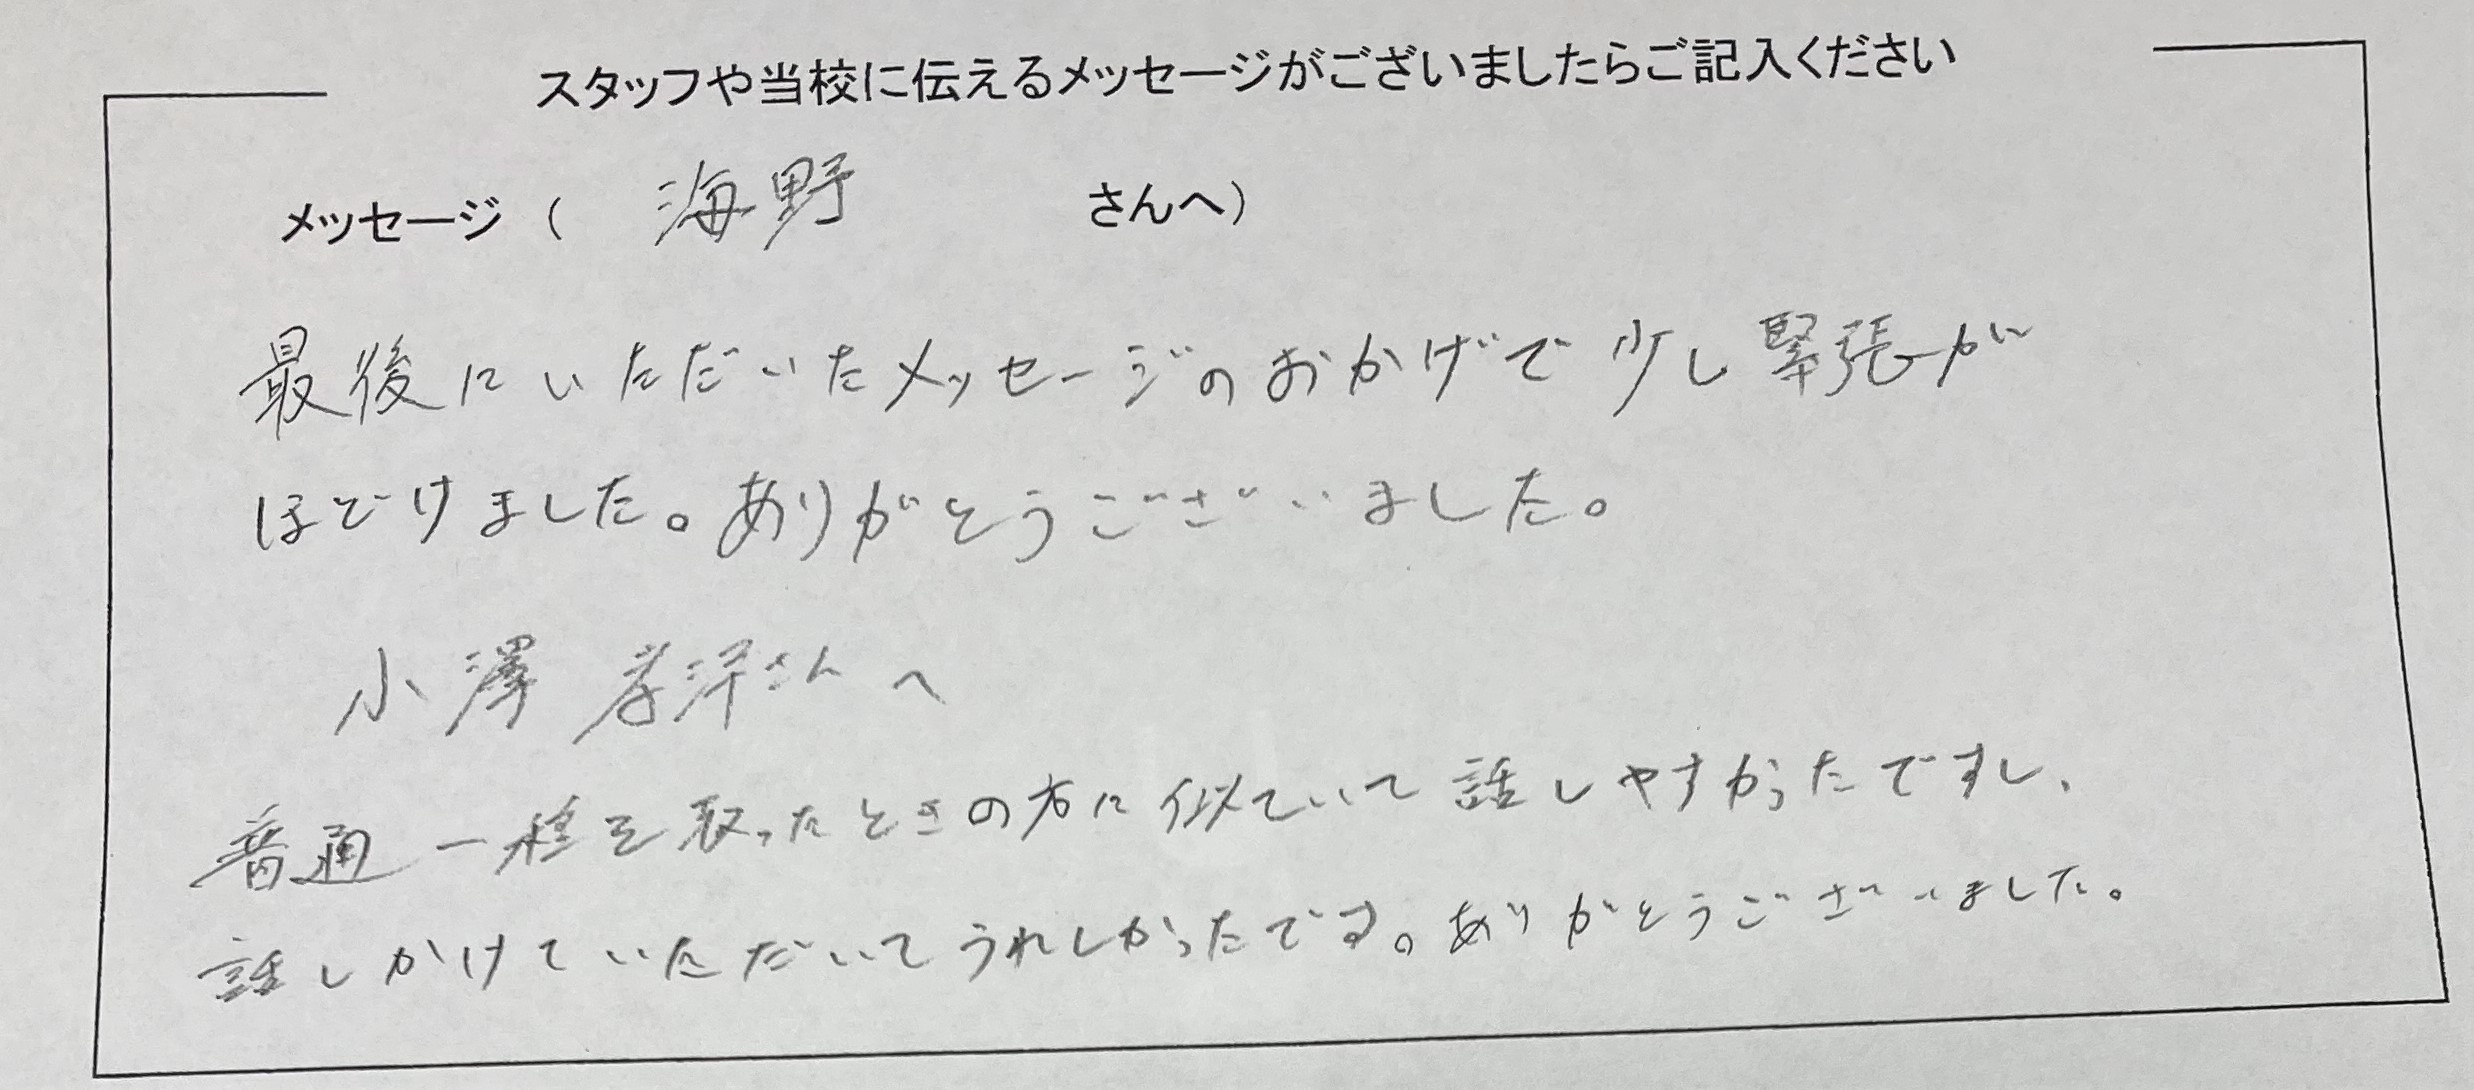 スタッフや当校に伝えるメッセージがございましたらご記入ください
メッセージ（ 海野 さんへ）
最後にいただいたメッセージのおかげで少し緊張が
ほどけました。ありがとうございました。
小澤 孝洋さんへ
普通一種を取ったときの方に似ていて話しやすかったですし、
話しかけていただいてうれしかったです。ありがとうございました。